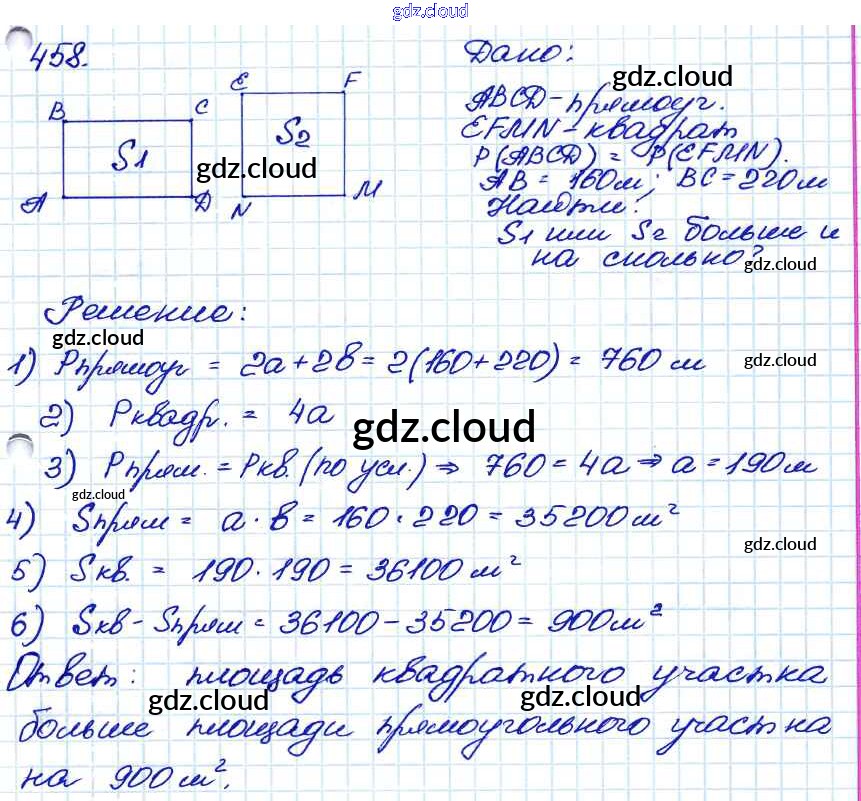 gdz.cloud
458.
B C
S1
A D
E F
S2
N M
gdz.cloud
Дано:
gdz.cloud
ABCD - прямоуг.
EFMN - квадрат
P(ABCD) = P(EFMN).
AB = 160м; BC = 220м
Найти:
S1 или S2 больше и
на сколько?
gdz.cloud
Решение:
gdz.cloud
1) Pпрямоуг = 2a + 2в = 2(160 + 220) = 760 м
gdz.cloud
2) Pквадр. = 4a
gdz.cloud
3) Pпрям. = Pкв. (по усл.) ⇒ 760 = 4a ⇒ a = 190м
gdz.cloud
4) Sпрям = a · в = 160 · 220 = 35200 м²
gdz.cloud
5) Sкв. = 190 · 190 = 36100 м²
6) Sкв - Sпрям = 36100 - 35200 = 900м²
Ответ: площадь квадратного участка
gdz.cloud gdz.cloud
больше площади прямоугольного участка
на 900 м².